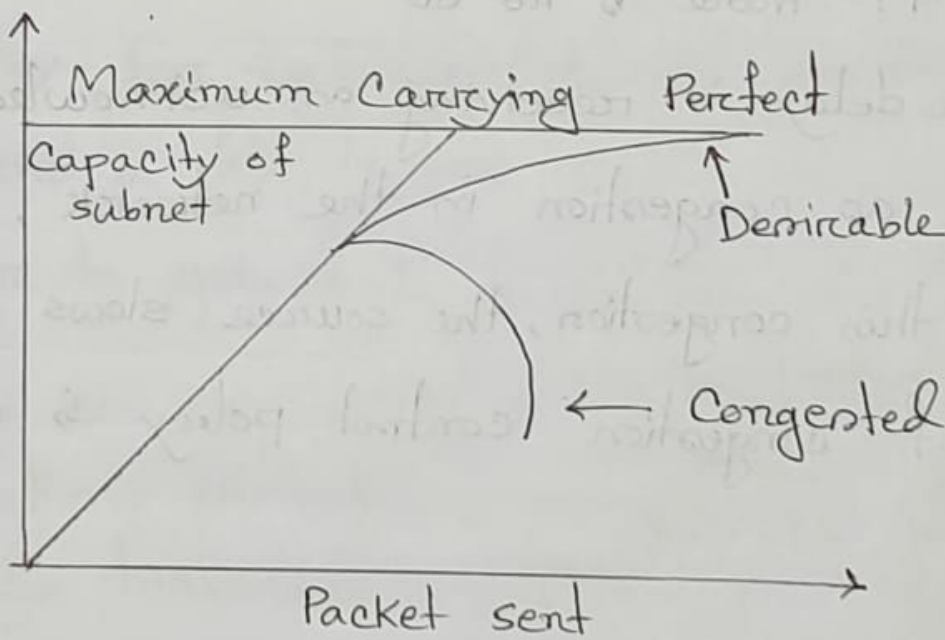 Maximum Carrying Perfect
Capacity of
subnet
Desirable
Congested
Packet sent